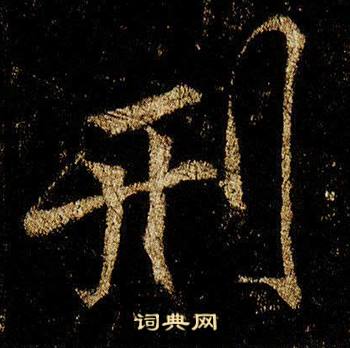 刑
词典网